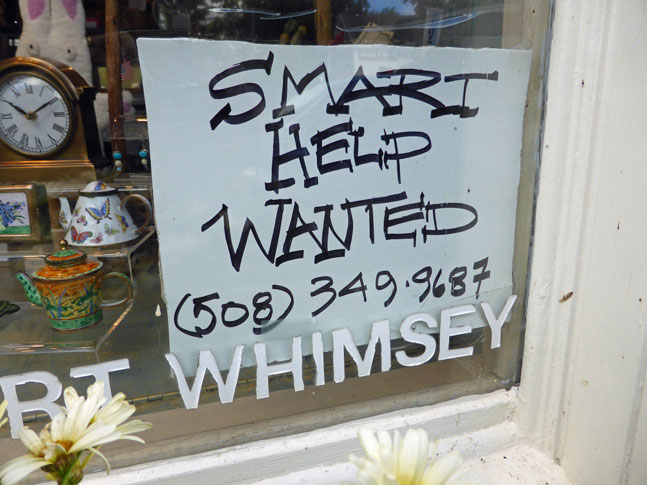 SMART
HELP
WANTED
(508) 349-9687
WHIMSEY